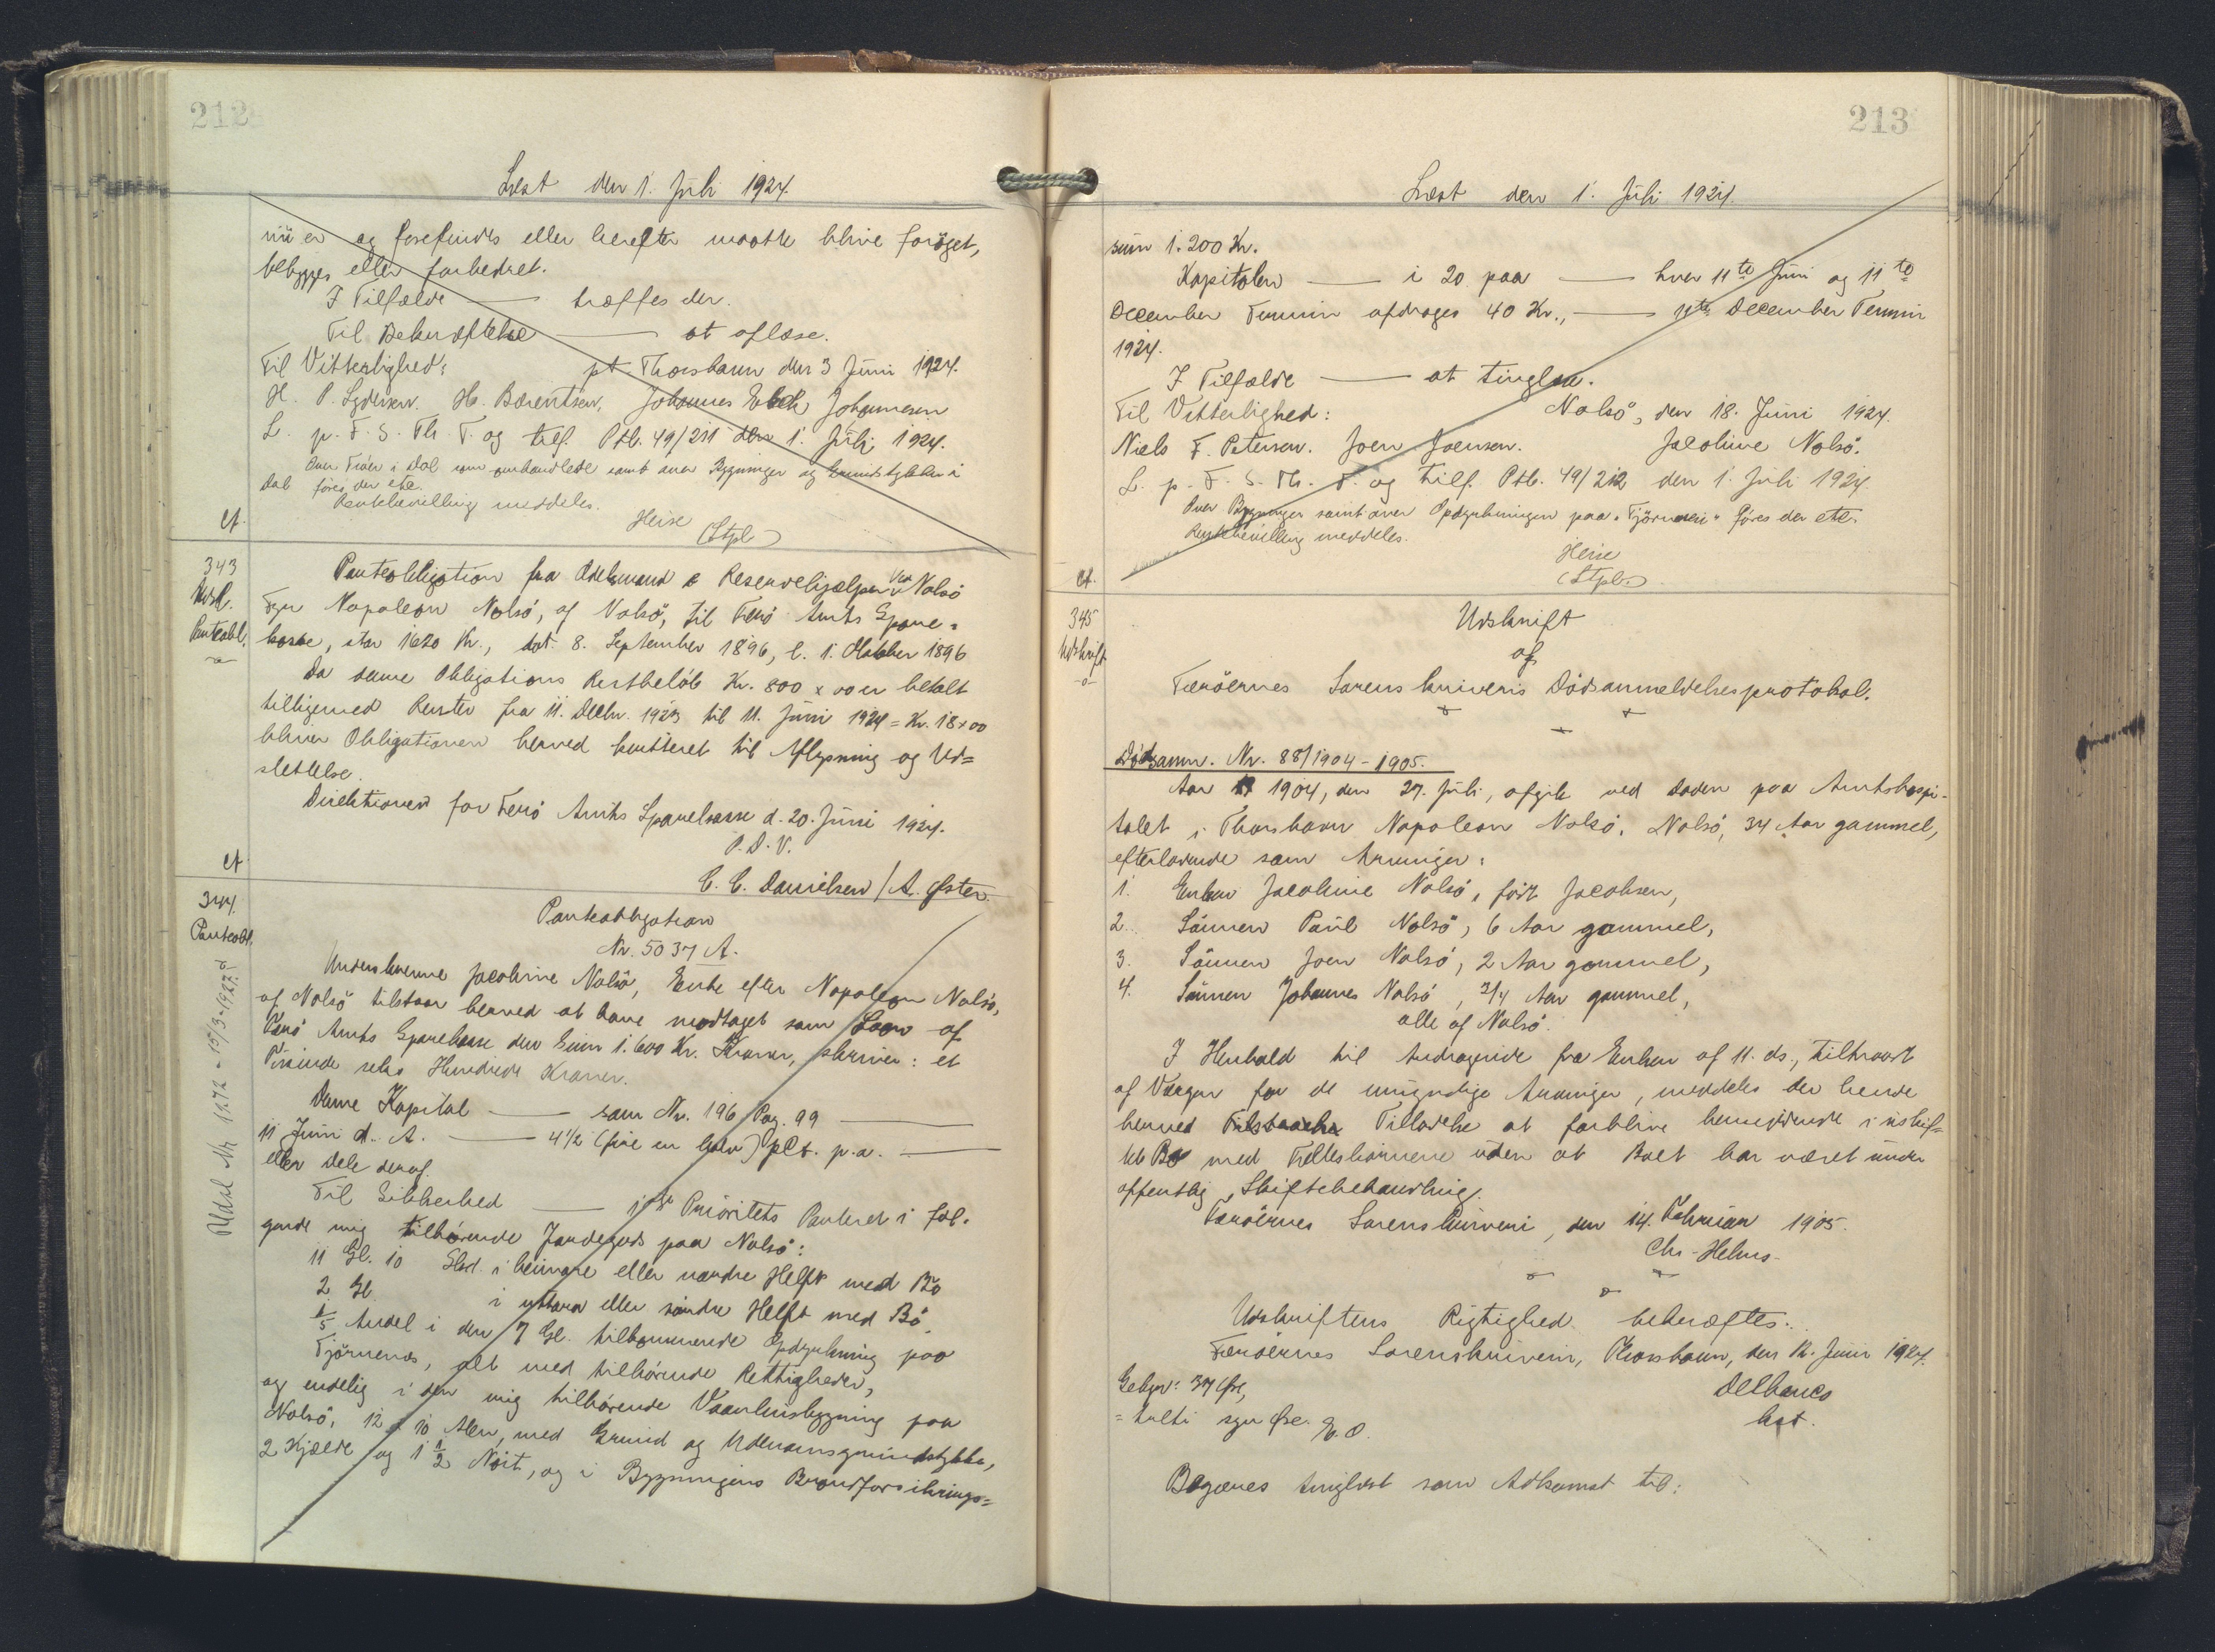 212
Læst den 1. Juli 1924.
nu er og forefindes eller herefter maatte blive forøget,
bebygges eller forbedret.
I Tilfælde — træffes der.
Til Bekræftelse — at aflæse.
Til Vitterlighed: pt. Thorshavn den 3 Juni 1924.
H. P. Lydersen. H. Barentsen. Johannes Johannesen
L. p. F. S. Th. T. og tilf. Ptb. 49/211 den 1. Juli 1924.
Over i Dal som omhandlede samt over Bygninger og Grundstykker i
Dal føres der etc.
Rentebevilling meddeles.
Heise
(Stpl.)
343
Udsl.
Panteobl.
Panteobligation fra Odelsmand & Reservehjælper ved Nolsø
Fyr Napoleon Nolsø, af Nolsø, til Færø Amts Spare=
kasse, stor 1620 Kr., dat. 8. September 1896, l. 1. Oktober 1896
Da denne Obligations Restbeløb Kr. 800 x 00 er betalt
tilligemed Renter fra 11. Decbr. 1923 til 11. Juni 1924 = Kr. 18 x 00
bliver Obligationen herved kvitteret til Aflysning og Ud=
slettelse.
Direktionen for Færø Amts Sparekasse d. 20. Juni 1924.
P. D. V.
C. C. Danielsen / A. Øster.
344.
Panteobl.
Udsl. Nr 1272 - 15/3-1927.
Panteobligation
Nr. 5037 A.
Underskrevne Jacobine Nolsø, Enke efter Napoleon Nolsø,
af Nolsø tilstaar herved at have modtaget som Laan af
Færø Amts Sparekasse den Sum 1.600 Kr. Kroner, skriver: et
Tusinde seks Hundrede Kroner.
Denne Kapital — som Nr. 196 Pag. 99 —
11 Juni d. A. — 4½ (fire en halv) pCt. p.a. —
eller Dele deraf.
Til Sikkerhed — 1ste Prioritets Panteret i føl-
gende mig tilhørende Jordegods paa Nolsø:
11 Gl. 10 Skd. i heimare eller nordre Helft med Bø
2 Gl. i yttara eller søndre Helft med Bø.
1/5 Andel i den 7 Gl. tilkommende Opdyrkning paa
Tjørnenes, alt med tilhørende Rettigheder,
og endelig i den mig tilhørende Vaanhusbygning paa
Nolsø, 12 x 10 Alen, med Grund og Udenomsgrundstykke,
2 Kjælde og 1 1/2 Nøst, og i Bygningens Brandforsikrings=
213
Læst den 1. Juli 1924.
sum 1.200 Kr.
Kapitalen — i 20 paa — hver 11te Juni og 11te
December Termin afdrages 40 Kr., — 11te December Termin
1924.
I Tilfælde — at tinglæse.
Til Vitterlighed: Nolsø, den 18. Juni 1924.
Niels F. Petersen. Joen Joensen. Jacobine Nolsø.
L. p. F. S. Th. T. og tilf. Ptb. 49/212 den 1. Juli 1924.
Over Bygninger samt over Opdyrkningen paa "Tjørnenes" føres der etc.
Rentebevilling meddeles.
Heise
(Stpl.)
345
Udskrift
Udskrift
af
Færøernes Sorenskriveris Dødsanmeldelsesprotokol.
Dødsanm. Nr. 88/1904-1905.
Aar 1904, den 27. Juli, afgik ved Døden paa Amtshospi-
talet i Thorshavn Napoleon Nolsø, Nolsø, 34 Aar gammel,
efterladende som Arvinger:
1. Enken Jacobine Nolsø, født Jacobsen,
2. Sønnen Paul Nolsø, 6 Aar gammel,
3. Sønnen Joen Nolsø, 2 Aar gammel,
4. Sønnen Johannes Nolsø, 3/4 Aar gammel,
alle af Nolsø.
I Henhold til Andragende fra Enken af 11. ds., tiltraadt
af Værgen for de umyndige Arvinger, meddeles der hende
herved Tilladelse at forblive hensiddende i uskif=
tet Bo med Fællesbørnene uden at Boet har været under
offentlig Skiftebehandling.
Færøernes Sorenskriveri, den 14. Februar 1905.
Chr. Helms.
Udskriftens Rigtighed bekræftes.
Færøernes Sorenskriveri, Thorshavn, den 12. Juni 1924.
Gebyr: 37 Øre, Delbanco
= tredti syv Øre. kst.
E. O.
Begæres tinglæst som Adkomst til: